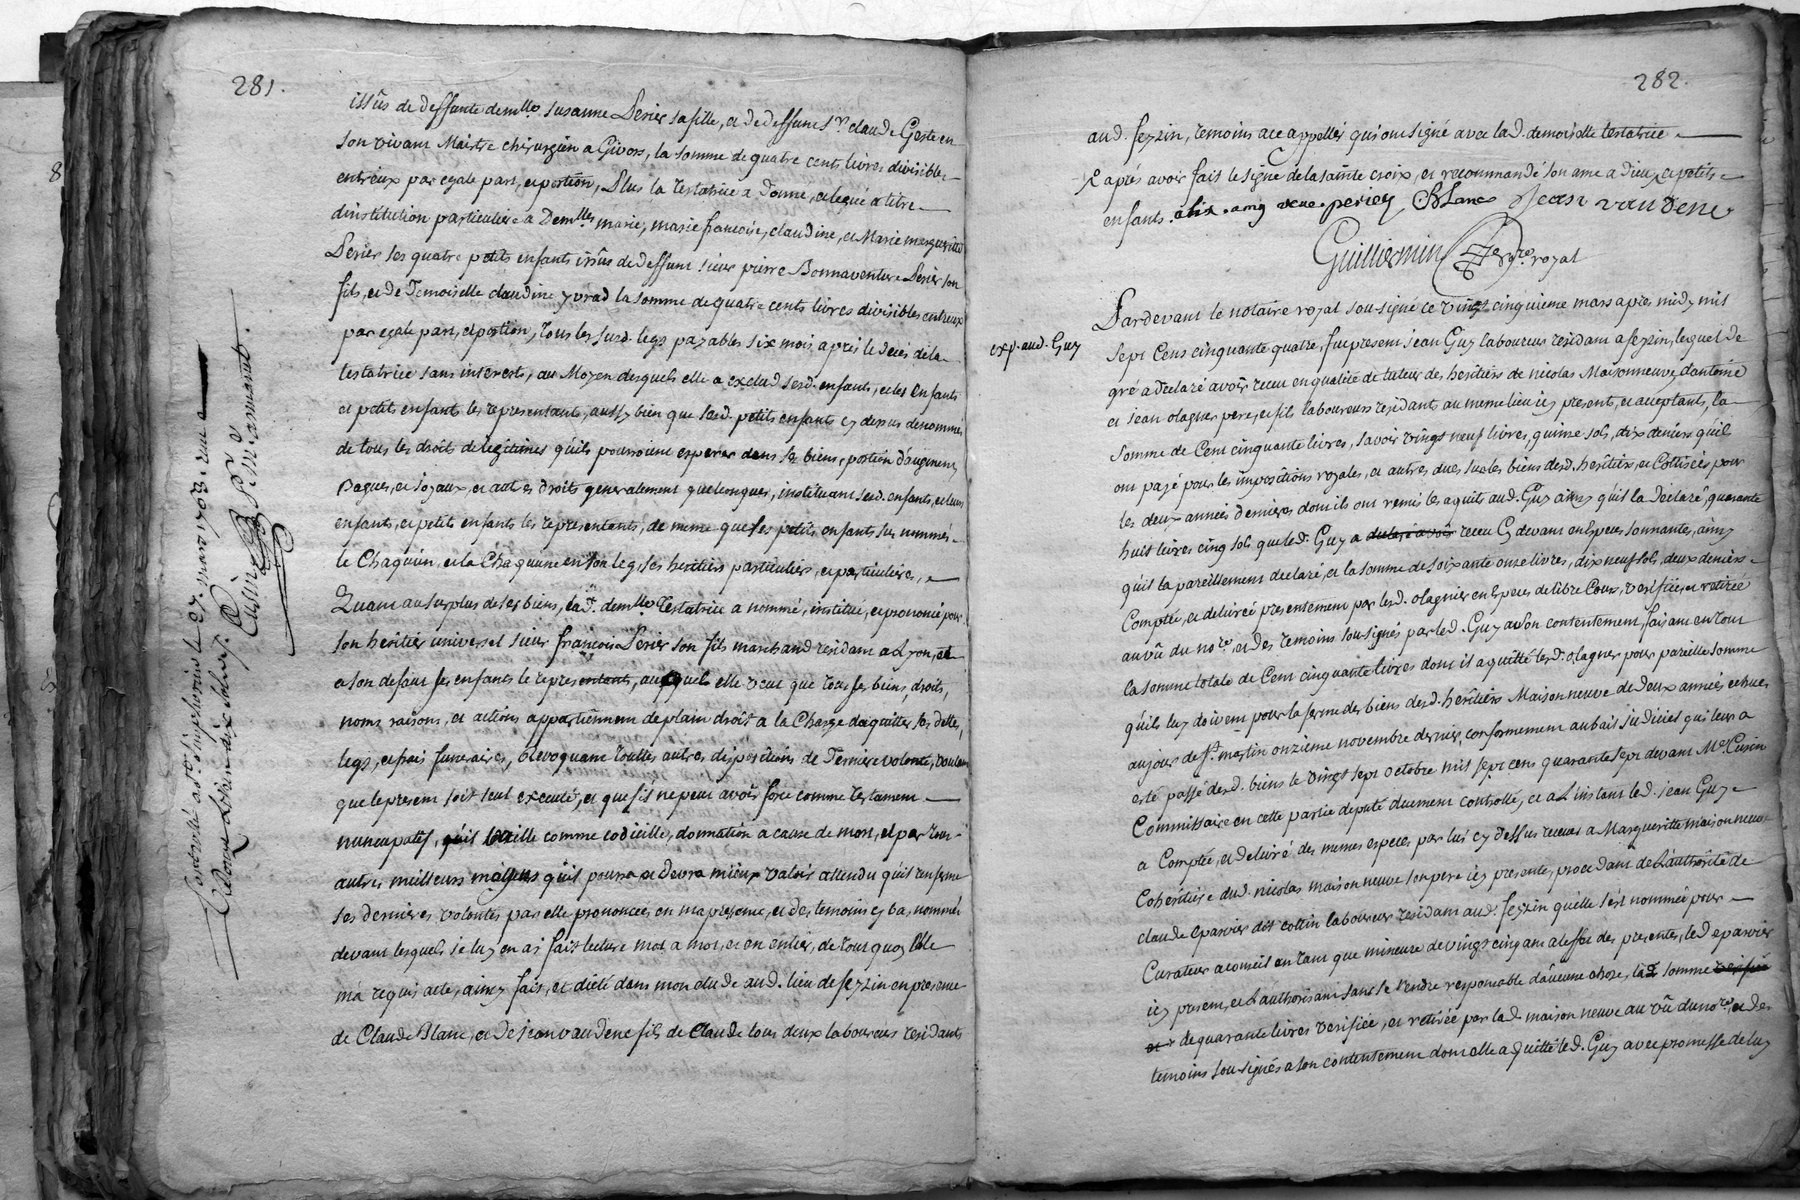 281.
issûs de deffunte demlle susanne Perier sa fille, et de deffunt sr. claude Geste en
son vivant Maistre chirurgien a Givors, la somme de quatre cents livres divisible
entreux par egale part, et portion, Plus la testatrice a donné, et legué a titre
dinstitution particuliere a Demlles marie, marie francoise, claudine, et Marie margueritte
Perier ses quatre petits enfants issûs de deffunt sieur pierre Bonnaventure Perier son
fils, et de Demoiselle claudine yvrad la somme de quatre cents livres divisibles entreux
par egale part, et portion, tous les susd. legs payables six mois après le decés de la
testatrice sans interests, au Moyen desquels elle a exclud sesd. enfants, et les enfants
et petits enfants les representants, aussy bien que sesd. petits enfants cy dessus denommés
de tous les droits de legitimes quils pourroient esperer dans ses biens, portion d'augment,
Bagues, et joyaux, et autres droits generalement quelconques, instituant sesd. enfants, et leurs
enfants, et petits enfants les representents, de meme que ses petits enfants sus nommés
le Chaquun, et la Chaquune en son leg, ses heritiers particuliers, et particulieres,
Quant au surplus de ses biens, lad. demlle testatrice a nommé, institué, et prononcé pour
son heritier universel sieur francois Perier son fils marchand residant a Lyon, et
a son defaut ses enfants le representents, auquel elle veut que tous ses biens, droits,
noms raisons, et actions appartiennent de plain droit a la Charge daquitter ses dettes,
legs, et frais funeraires, Revoquant touttes autres dispositions de derniere volonté, voulant
que le present soit seul executé, et que s'il ne peut avoir force comme testament
nuncupatif, quil vaille comme codicille, donnation a cause de mort, et par tous
autres meilleurs moyens qu'il pourra et devra mieux valoir attendu qu'il renferme
ses dernieres volontés par elle prononcées en ma presence, et des temoins cy bas nommés
devant lesquels je luy en ai fait lecture mot a mot, et en entier, de tout quoy Elle
m'a requis acte, ainsy fait, et dicté dans mon etude aud. lieu de feyzin en presence
de Claude Blanc, et de jean vaudene fils de Claude tous deux laboureurs residants
Controllé a st. simphorien le 27. mars 1754.
282.
aud. feyzin, temoins ace appellés qui ont signé avec lad. demoiselle testatrice
& après avoir fait le signe de la sainte croix, et recommandé son ame a dieu, et petits
enfants. alix. amy veue. perier C Blanc Jean vaudene
Guilliermin nore. royal
exp. aud. Guy
Pardevant le notaire royal sousigné ce vingt cinquieme mars apres midy mil
sept Cens cinquante quatre, fut present jean Guy laboureur residant a feyzin, lequel de
gré a declaré avoir receu en qualité de tuteur des heritiers de nicolas Maisonneuve, d'antoine
et jean olagnier pere, et fils laboureurs residants au meme lieu icy present, et acceptants, la
somme de Cent cinquante livres, savoir vingt neuf livres, quinze sols, dix deniers qu'il
ont payé pour les impositions royales, et autres dues sur les biens desd. heritiers, et Cottisées pour
les deux années dernieres dont ils ont remis les aquits aud. Guy ainsy qu'il la declaré, quarante
huit livres cinq sols que led. Guy a declaré avoir receu Cy devant en Especes sonnantes, ainsy
qu'il la pareillement declaré, et la somme de soixante onze livres, dix neuf sols, deux deniers
Comptée, et delivrée presentement par lesd. olagnier en Especes de libre Cours, verifiée, et retirée
au vû du nore, et des temoins sousignés par led. Guy a son contentement faisant en tout
la somme totale de Cent cinquante livres dont il a quitté lesd. olagnier pour pareille somme
qu'ils luy doivent pour la ferme des biens desd. heritiers Maisonneuve de deux années echues
au jour de st. martin onzieme novembre dernier, conformement au bail judiciel qui leur a
esté passé desd. biens le vingt sept octobre mil sept cens quarante sept devant Me. Cusin
Commissaire en cette partie deputé duement controllé, et a L'instant led. jean Guy
a Compté, et delivré des memes especes par lui cy dessus receues a Margueritte maisonneuve
Cohéritiere dud. nicolas maisonneuve son pere icy presente, procedant de L'authorité de
claude eparvier dit cottin laboureur residant aud. feyzin qu'elle s'est nommée pour
Curateur a conseil en tant que mineure de vingt cinq ans a leffet des presentes, led. eparvier
icy present, et L'authorisant sans se rendre responsable d'aucune chose, la somme
de quarante livres verifiée, et retirée par lad. maisonneuve au vû du nore, et des
temoins sousignés a son contentement dont elle a quitté led. Guy avec promesse de luy